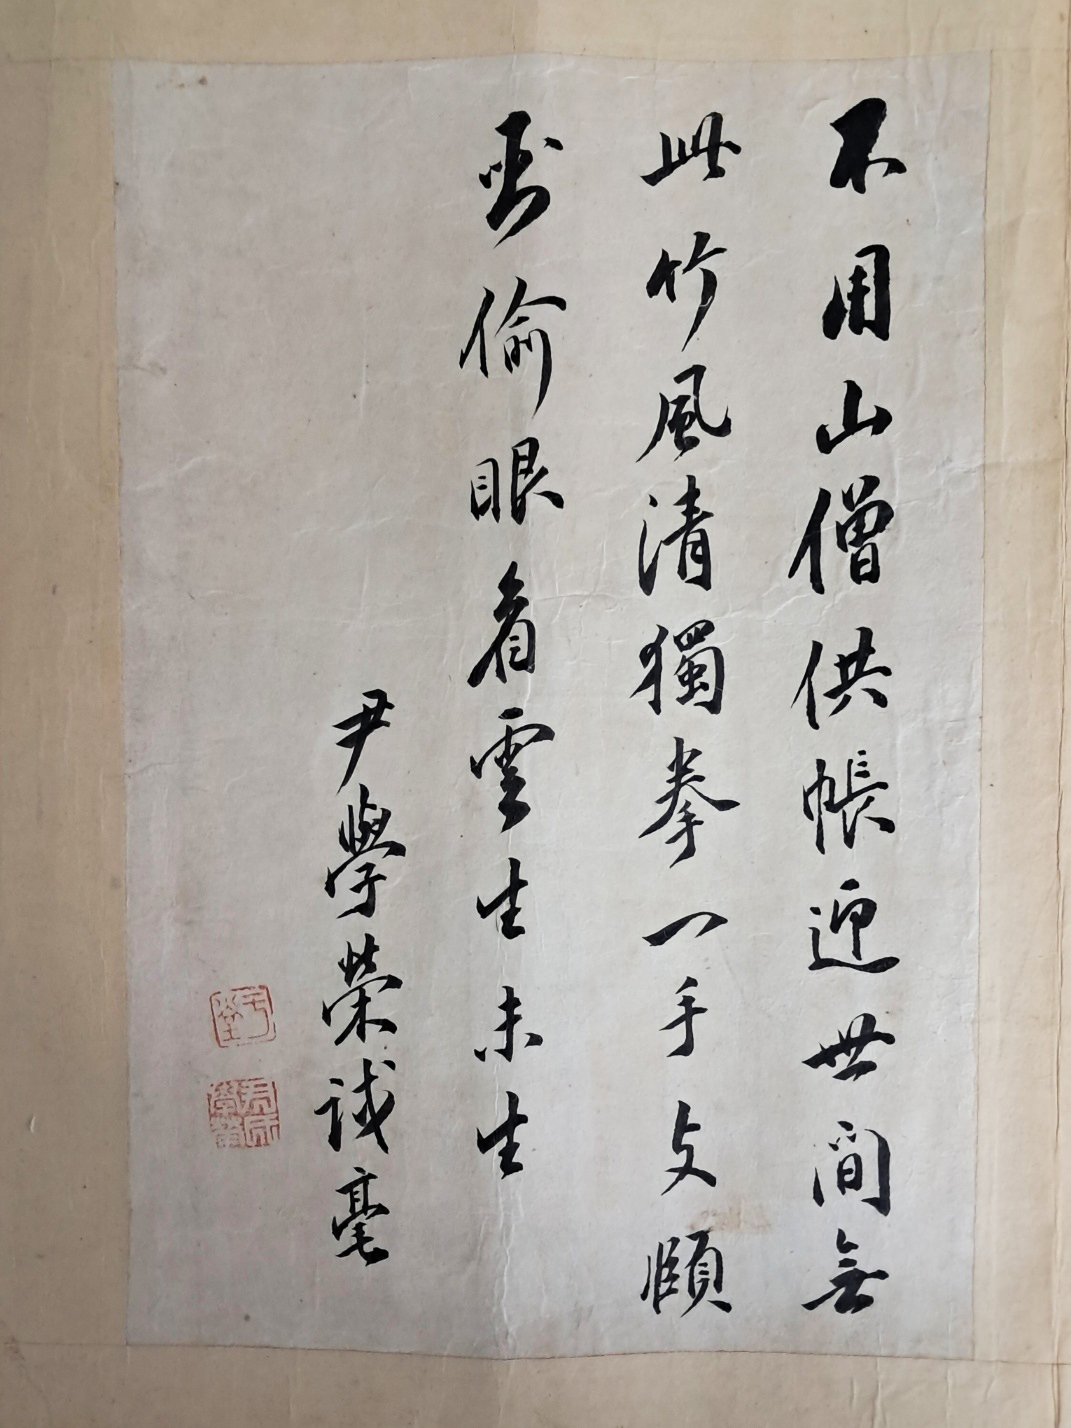 不用山僧供帳迎世間無
此竹風清獨拳一手支頤
臥偷眼看雲生未生
尹學榮試毫